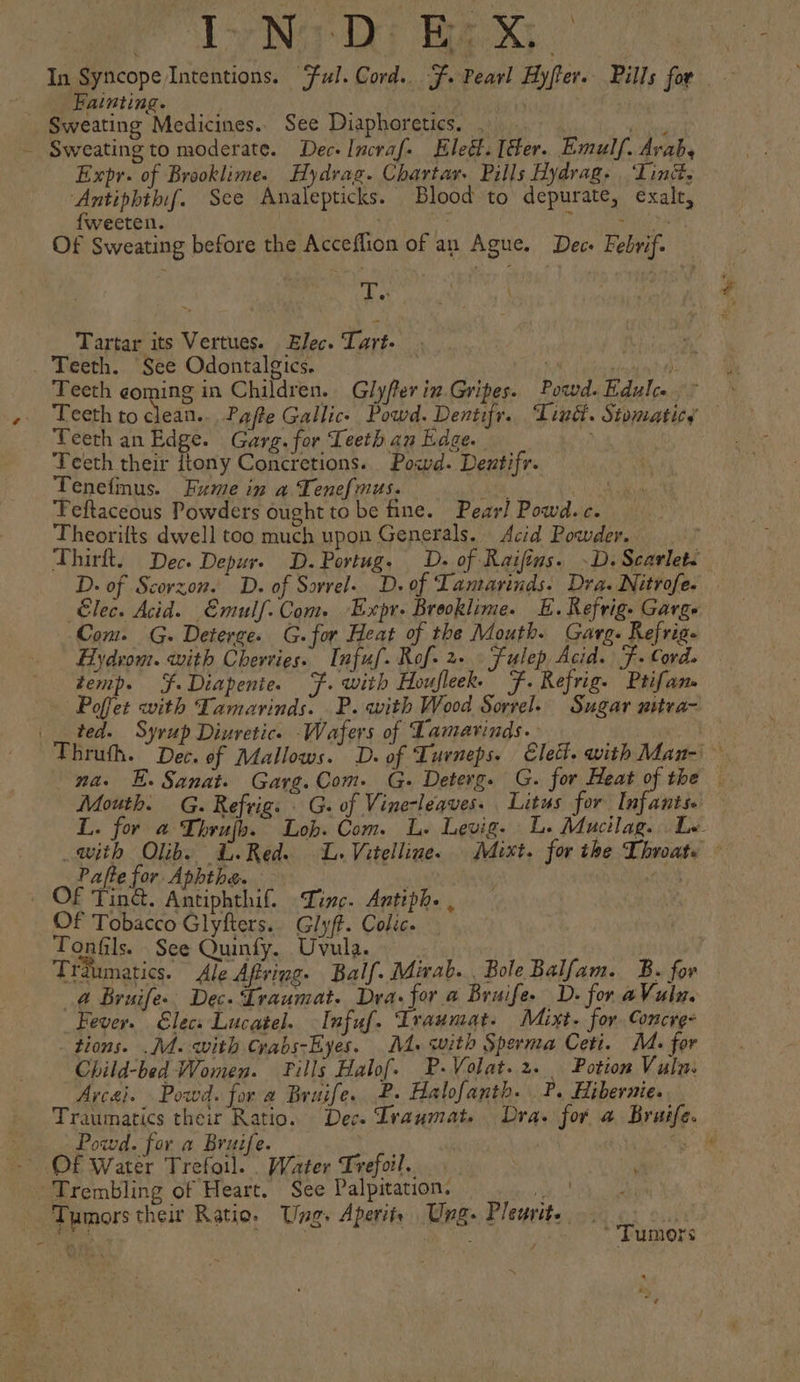 I N D E X.
In Syncope Intentions. Jul. Cord. J. Pearl Hyster. Pills for
Fainting.
Sweating Medicines. See Diaphoretics.
Sweating to moderate. Dec. Incraſ. Elect. Icter. Emulſ. Arab.
Expr. of Brooklime. Hydrag. Chartar. Pills Hydrag. Tinct.
Antiphthiſ. See Analepticks. Blood to depurate, exalt,
ſweeten.
Of Sweating before the Acceſſion of an Ague. Dec. Febrif.
T.
Tartar its Vertues. Elec. Tart.
Teeth. See Odontalgics.
Teeth coming in Children. Glyſter in Gripes. Powd. Edulc.
Teeth to clean. Paſte Gallic. Powd. Dentifr. Tinct. Stomatics
Teeth an Edge. Garg. for Teeth an Edge.
Teeth their ſtony Concretions. Powd. Dentifr.
Teneſmus. Fume in a Teneſmus.
Teſtaceous Powders ought to be fine. Pearl Powd. c.
Theoriſts dwell too much upon Generals. Acid Powder.
Thirſt. Dec. Depur. D. Portug. D. of Raiſins. D. Scarlet.
D. of Scorzon. D. of Sorrel. D. of Tamarinds. Dra. Nitroſe.
Elec. Acid. Emulſ. Com. Expr. Brooklime. E. Refrig. Garg.
Com. G. Deterge. G. for Heat of the Mouth. Garg. Refrig.
Hydrom. with Cherries. Infuſ. Roſ. 2. Julep Acid. J. Cord.
temp. J. Diapente. J. with Houſleek. J. Refrig. Ptiſan.
Poſſet with Tamarinds. P. with Wood Sorrel. Sugar nitra-
ted. Syrup Diuretic. Wafers of Tamarinds.
Thruſh. Dec. of Mallows. D. of Turneps. Elect. with Man-
na. E. Sanat. Garg. Com. G. Deterg. G. for Heat of the
Mouth. G. Refrig. G. of Vine-leaves. Litus for Infants.
L. for a Thruſh. Loh. Com. L. Levig. L. Mucilag. L.
with Olib. L. Red. L. Vitelline. Mixt. for the Throat.
Paſte for Aphthæ.
Of Tinct. Antiphthiſ. Tinc. Antiph.
Of Tobacco Glyſters. Glyſt. Colic.
Tonſils. See Quinſy. Uvula.
Traumatics. Ale Aſtring. Balſ. Mirab. Bole Balſam. B. for
a Bruiſe. Dec. Traumat. Dra. for a Bruiſe. D. for a Vuln.
Fever. Elec. Lucatel. Infuſ. Traumat. Mixt. for Concre-
tions. M. with Crabs-Eyes. M. with Sperma Ceti. M. for
Child-bed Women. Pills Haloſ. P. Volat. 2. Potion Vuln.
Arcæi. Powd. for a Bruiſe. P. Haloſanth. P. Hiberniæ.
Traumatics their Ratio. Dec. Traumat. Dra. for a Bruiſe.
Powd. for a Bruiſe.
Of Water Trefoil. Water Trefoil.
Trembling of Heart. See Palpitation.
Tumors their Ratio. Ung. Aperit. Ung. Pleurit.
Tumors